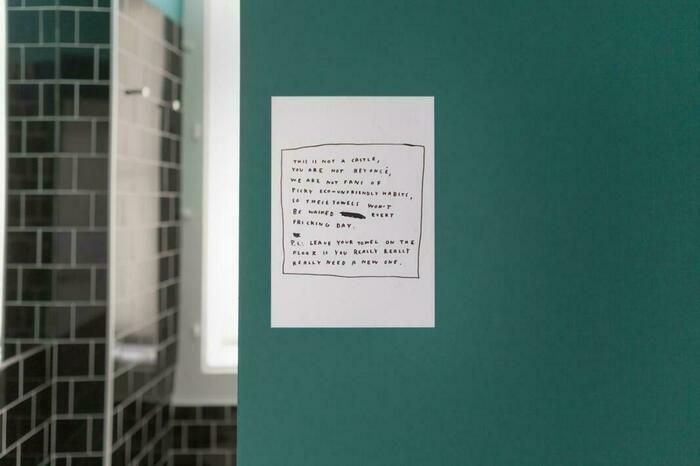 THIS IS NOT A CASTLE,
YOU ARE NOT BEYONCÉ,
WE ARE NOT FANS OF
PICKY ECO-UNFRIENDLY HABITS,
SO THESE TOWELS WON'T
BE WASHED EVERY
FRICKING DAY.
P.S: LEAVE YOUR TOWEL ON THE
FLOOR IF YOU REALLY REALLY
REALLY NEED A NEW ONE.